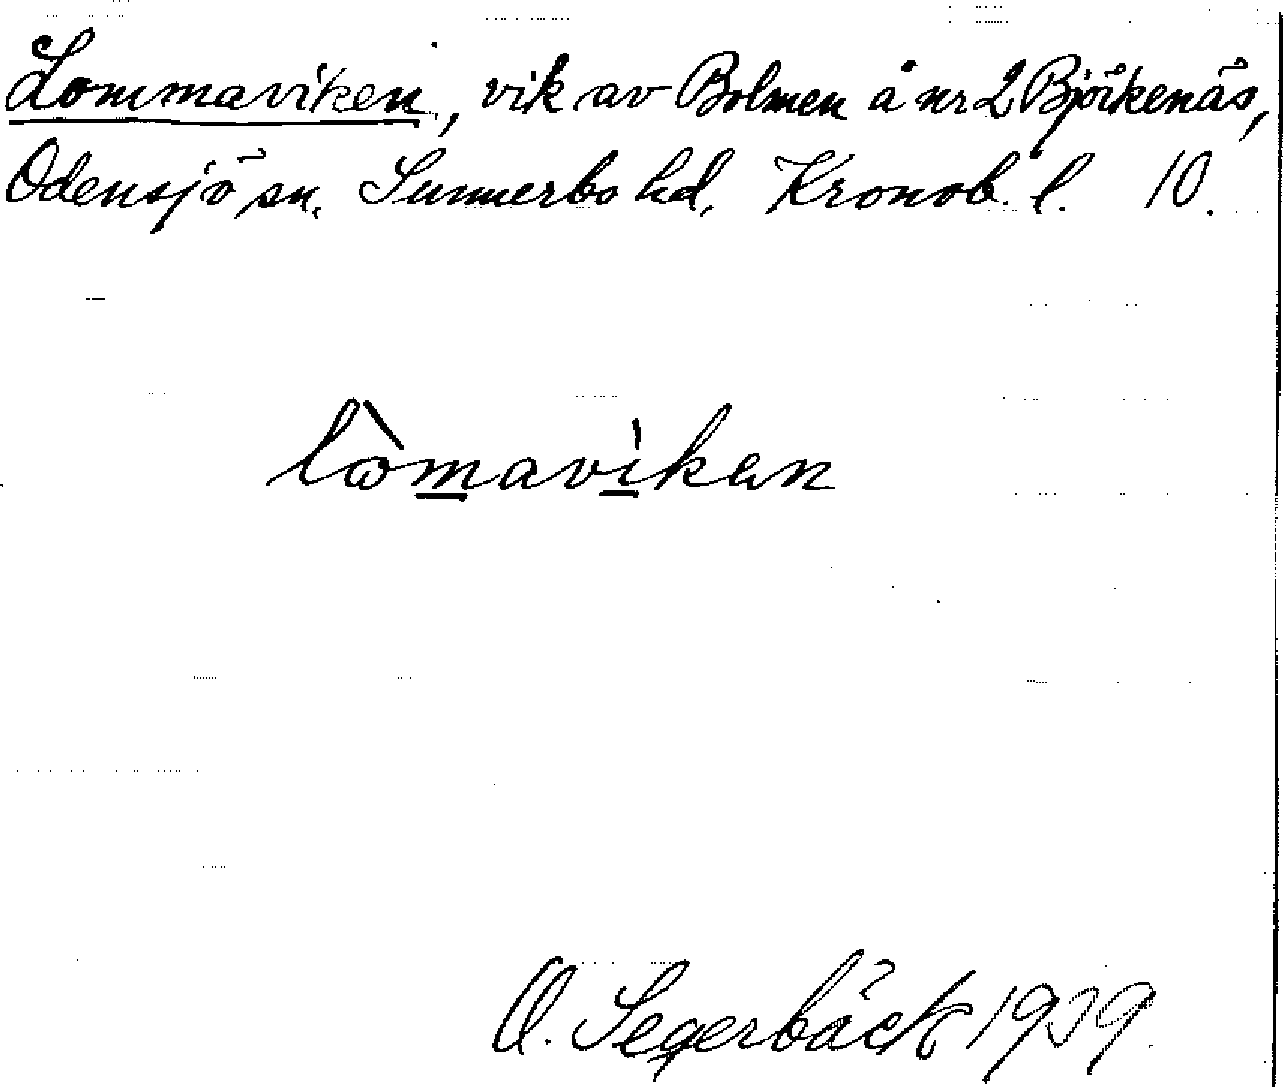 Lommaviken, vik av Bolmen å nr 2 Björkenäs,
Odensjö sn. Sunnerbo hd. Kronob. l. 10.
lòmaviken
O. Segerbäck 1939.